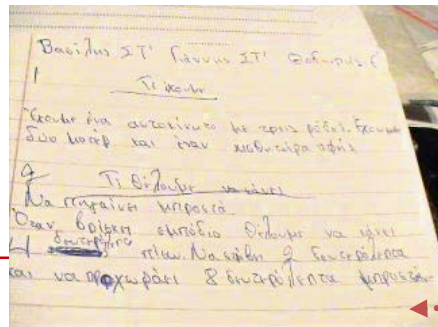 Βασίλης ΣΤ' Γιάννης ΣΤ' Θοδωρής Ε
1 Τι έχουμε
Έχουμε ένα αυτοκίνητο με τρεις ρόδες. Έχουμε
δύο μοτέρ και έναν αισθητήρα αφής
2 Τι θέλουμε να κάνει
Να πηγαίνει μπροστά.
Όταν βρίσκει εμπόδιο θέλουμε να κάνει
4 δευτερόλεπτα πίσω. Να στρίβει 2 δευτερόλεπτα
και να προχωράει 8 δευτερόλεπτα μπροστά.